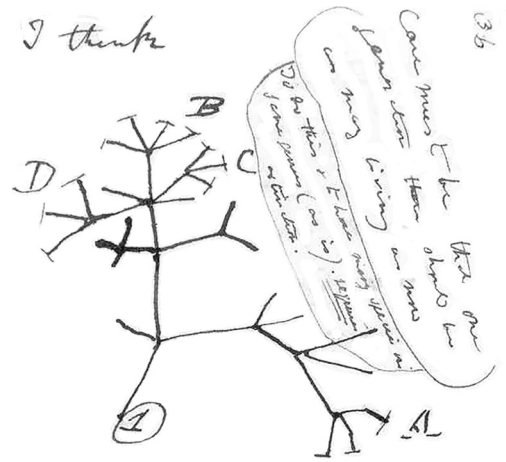 I think
(36
B
C
D
A
1
Case must be that one
generation then should be
as many living as now
To do this & to have many species in
same genus (as is). requires
extinction.